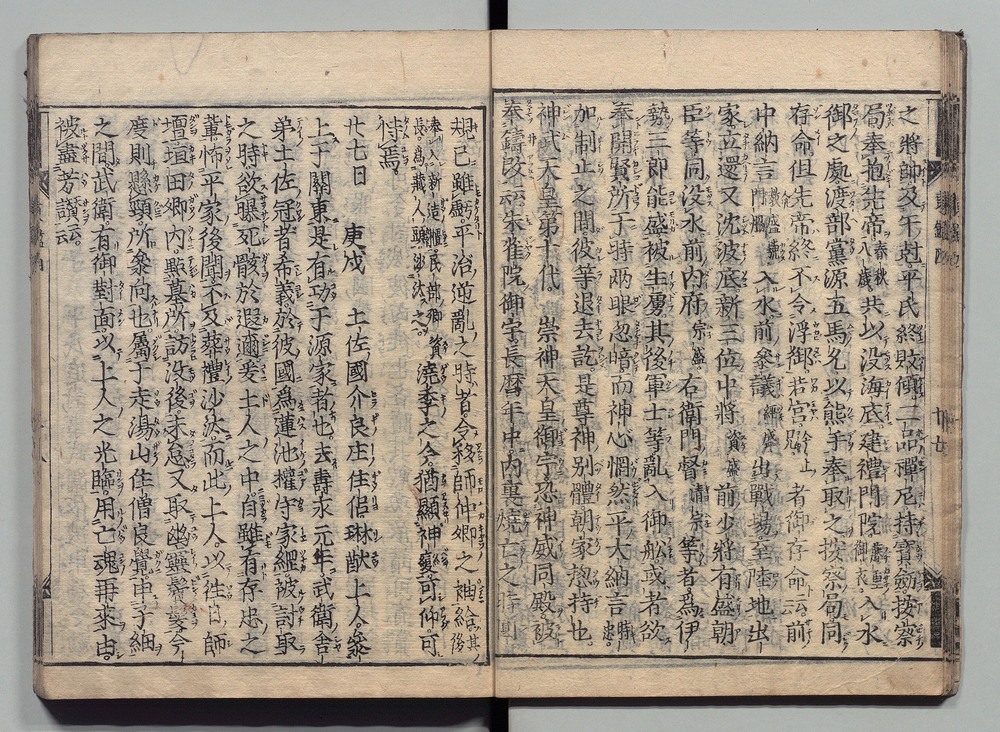 之將帥及午剋平氏終敗傾二品禪尼持寶劔按察
局奉抱先帝春秋八歲共以没海底建禮門院藤重御衣入水
御之處渡部黨源五馬允以熊手奉取之按察局同
存命但先帝終不令浮御若宮今上兄者御存命云前
中納言教盛號門脇入水前參議經盛出戰場至陸地出
家立還又沈波底新三位中將資盛前少將有盛朝
臣等同没水前内府宗盛右衛門督清宗等者為伊
勢三郎能盛被生虜其後軍士等亂入御舩或者欲
奉開賢所于時兩眼忽暗而神心惘然平大納言時忠
加制止之間彼等退去訖是尊神别體朝家惣持也
神武天皇第十代崇神天皇御宇恐神威同殿被
奉鑄改云朱雀院御宇長曆年中内裏燒亡之時
規已雖虧平治逆亂之時者令移師仲卿之袖給其後
奉入新造櫃民部卿資長為藏人頭沙汰之澆季之今猶顯神變可仰可
恃焉
廿七日 庚戌 土佐國介良庄住侶琳猷上人參
上于關東是有功于源家者也去壽永元年武衛舎
弟土佐冠者希義於彼國為蓮池權守家綱被討取
之時欲曝死骸於遐邇爰土人之中自雖有存忠之
輩怖平家後聞不及葬禮沙汰而此上人以往日師
壇垣田郷内點墓所訪没後未怠又取幽靈鬢髮今
度則懸頸所參向也屬于走湯山住僧良覺申子細
之間武衛有御對面以上人之光臨用亡魂再來由
被盡芳讃云